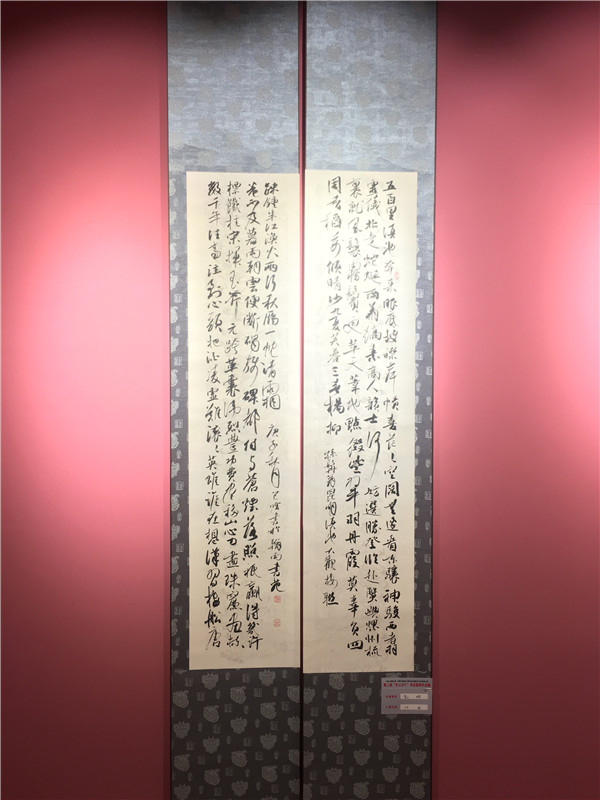 五百里滇池奔来眼底披襟岸幘喜茫々空闊無邊看东驤神駿西翥
靈儀北走蜿蜒南翔縞素高人韻士何妨選勝登臨趁蟹嶼螺洲梳
裹就風鬟霧鬢更苹天葦地點綴些翠羽丹霞莫辜負四
围香稻万顷晴沙九夏芙蓉三春楊柳 孫髯翁昆明滇池大觀樓聯
數千年往事注到心頭把酒凌虛歎滚々英雄誰在想漢習樓船唐
標鐵柱宋揮玉斧元跨革囊偉烈豐功費尽移山心力盡珠簾畫棟
卷不及暮雨朝雲便斷碣殘碑都付与蒼煙落照祇贏得幾杵
疎鐘半江漁火两行秋雁一枕清霜 庚子秋月 書於 書苑